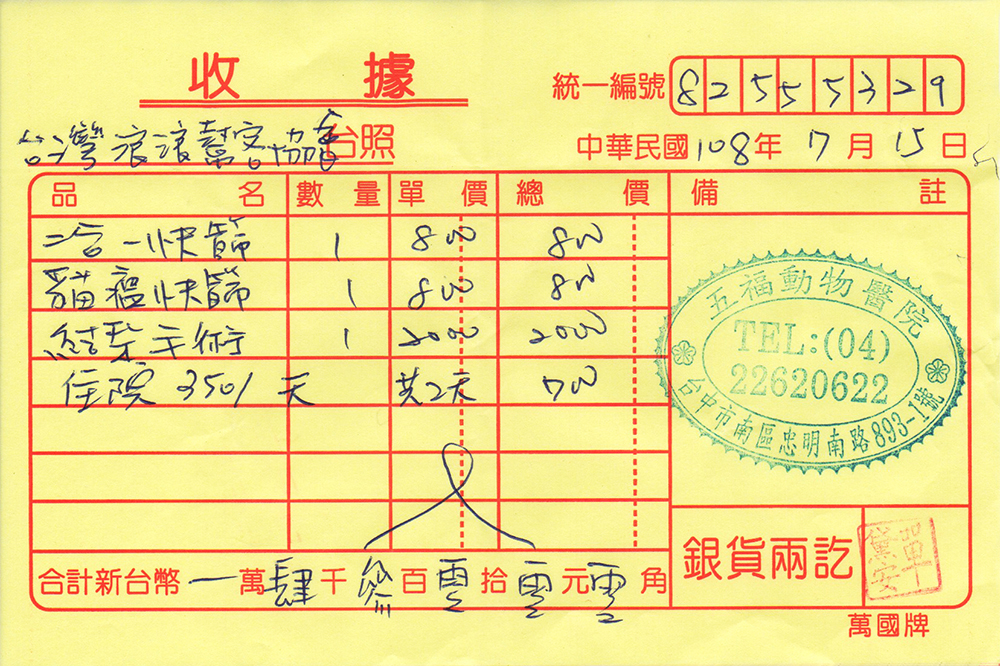 收據
統一編號 82555329
台灣浪浪幫客協會 台照
中華民國 108 年 7 月 15 日
品名 數量 單價 總價 備註
二合一快篩 1 800 800
貓瘟快篩 1 800 800
結紮手術 1 2000 2000
住院 350/天 共2天 700
五福動物醫院
TEL:(04)
22620622
台中市南區忠明南路893-1號
合計新台幣 一萬肆千叁百零拾零元零角
銀貨兩訖
單黛安
萬國牌